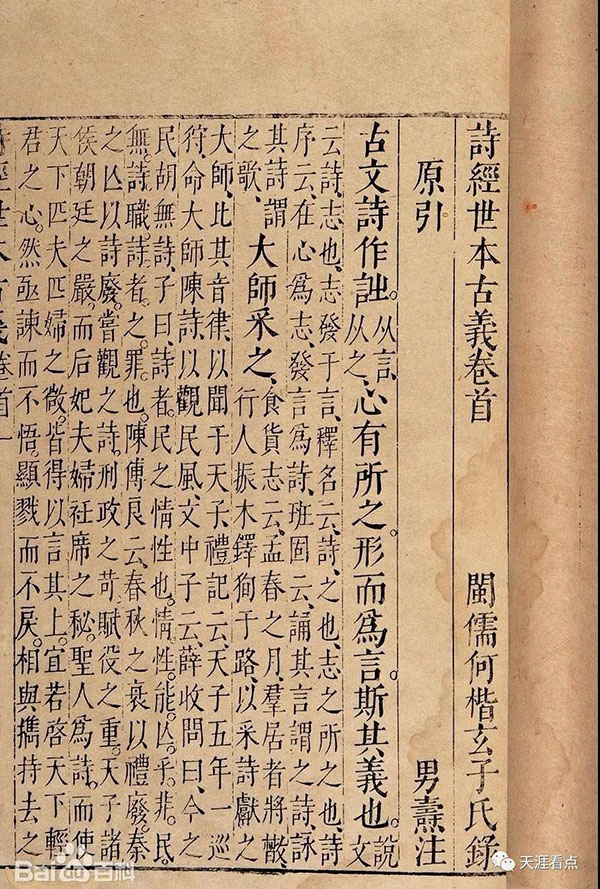 詩經世本古義卷首 閩儒何楷玄子氏錄
原引 男燾注
古文詩作訨。从言、从之、心有所之。形而爲言。斯其義也。說文
云、詩、志也、志發于言、釋名云、詩、之也、志之所之也、詩
序云、在心爲志、發言爲詩、班固云、誦其言謂之詩、詠
其詩謂之歌、大師采之、食貨志云、孟春之月、羣居者將散、
行人振木鐸徇于路、以采詩獻之
大師、比其音律、以聞于天子、禮記云、天子五年一巡
狩、命大師陳詩、以觀民風、文中子云、薛收問曰、今之
民胡無詩、子曰、詩者、民之情性也、情性能亾乎、非民
無詩、職詩者之罪也、陳傅良云、春秋之衰以禮廢、秦
之亾以詩廢。嘗觀之詩、刑政之苛、賦役之重、天子諸
侯朝廷之嚴、而后妃夫婦衽席之秘。聖人爲詩、而使
天下匹夫匹婦之微、皆得以言其上。宜若啓天下輕
君之心。然亟諫而不悟。顯戮而不戾。相與攜持去之
經世本古義卷首一
Baidu百科
天涯看点